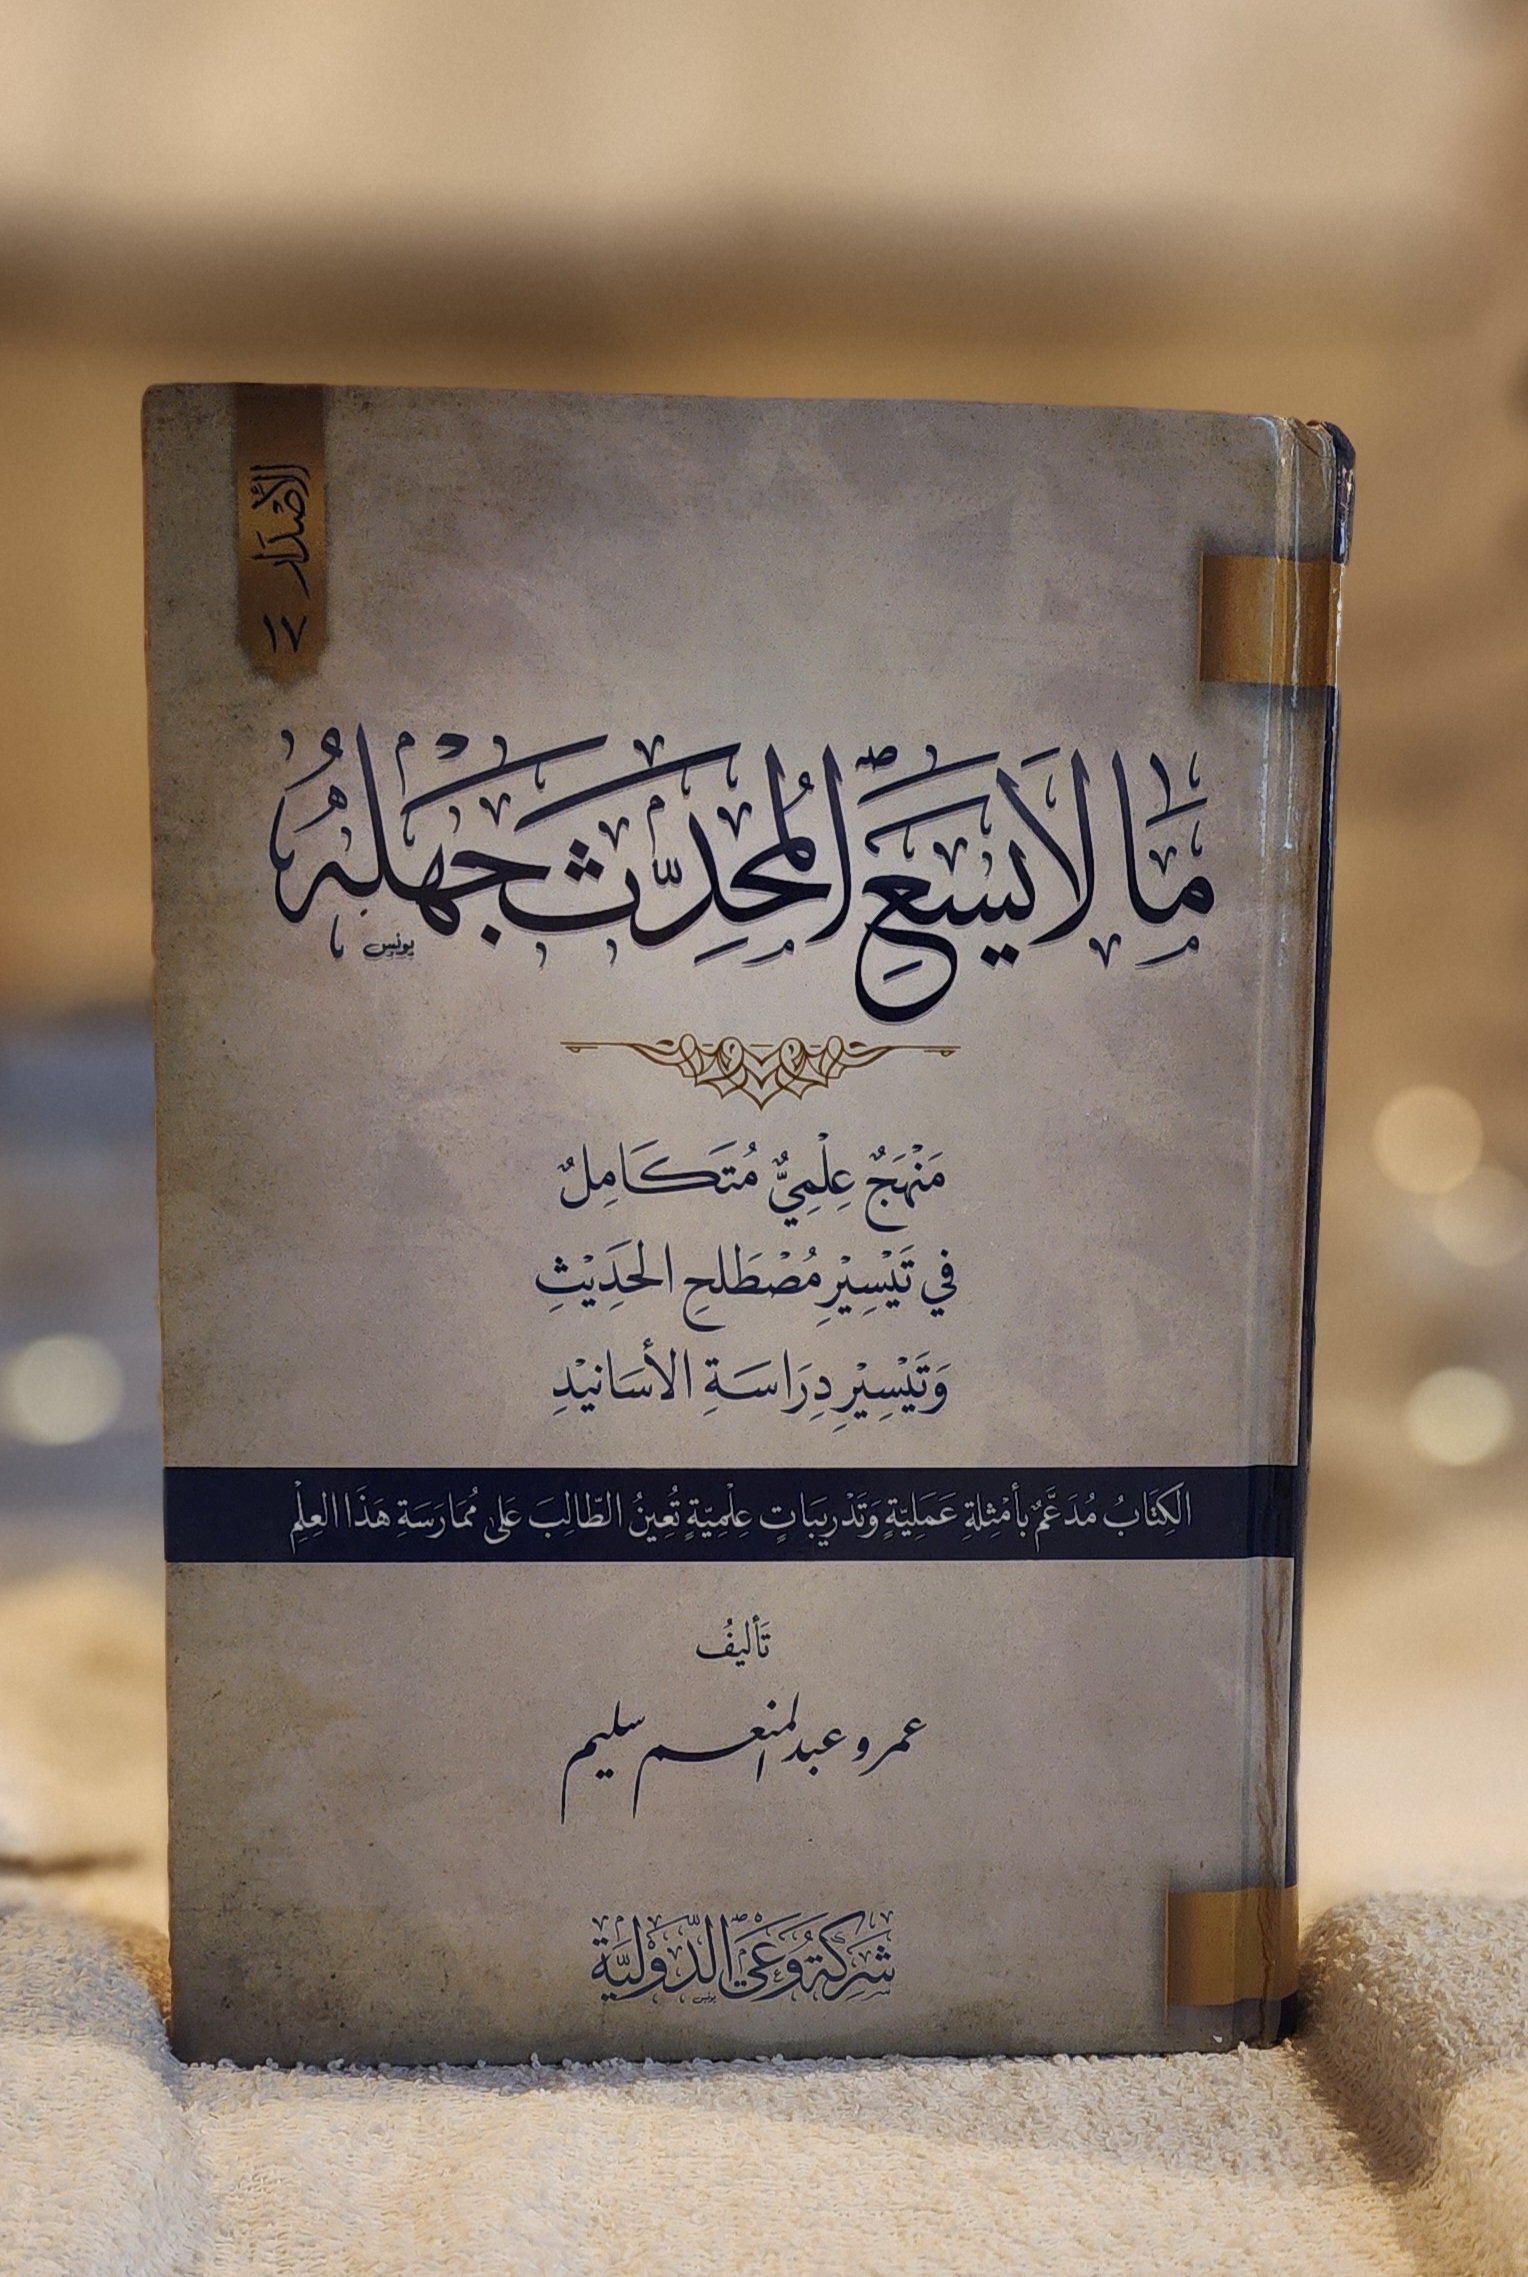 الأصدار
مَا لَا يَسَعُ الْمُحَدِّثَ جَهْلُهُ
يونس
مَنْهَجٌ عِلْمِيٌّ مُتَكَامِلٌ
في تَيْسِيْرِ مُصْطَلحِ الحَدِيْثِ
وَتَيْسِيْرِ دِرَاسَةِ الأسَانيْدِ
الكِتَابُ مُدَعَّمٌ بأمْثِلةِ عَمَليّةٍ وَتَدْريبَاتٍ عِلْمِيّةٍ تُعِينُ الطّالِبَ عَلىٰ مُمَارَسَةِ هَذَا العِلْمِ
تَأليفُ
عمرو عبد المنعم سليم
شَركَةُ وَعْيِ الدَّوْليَّة